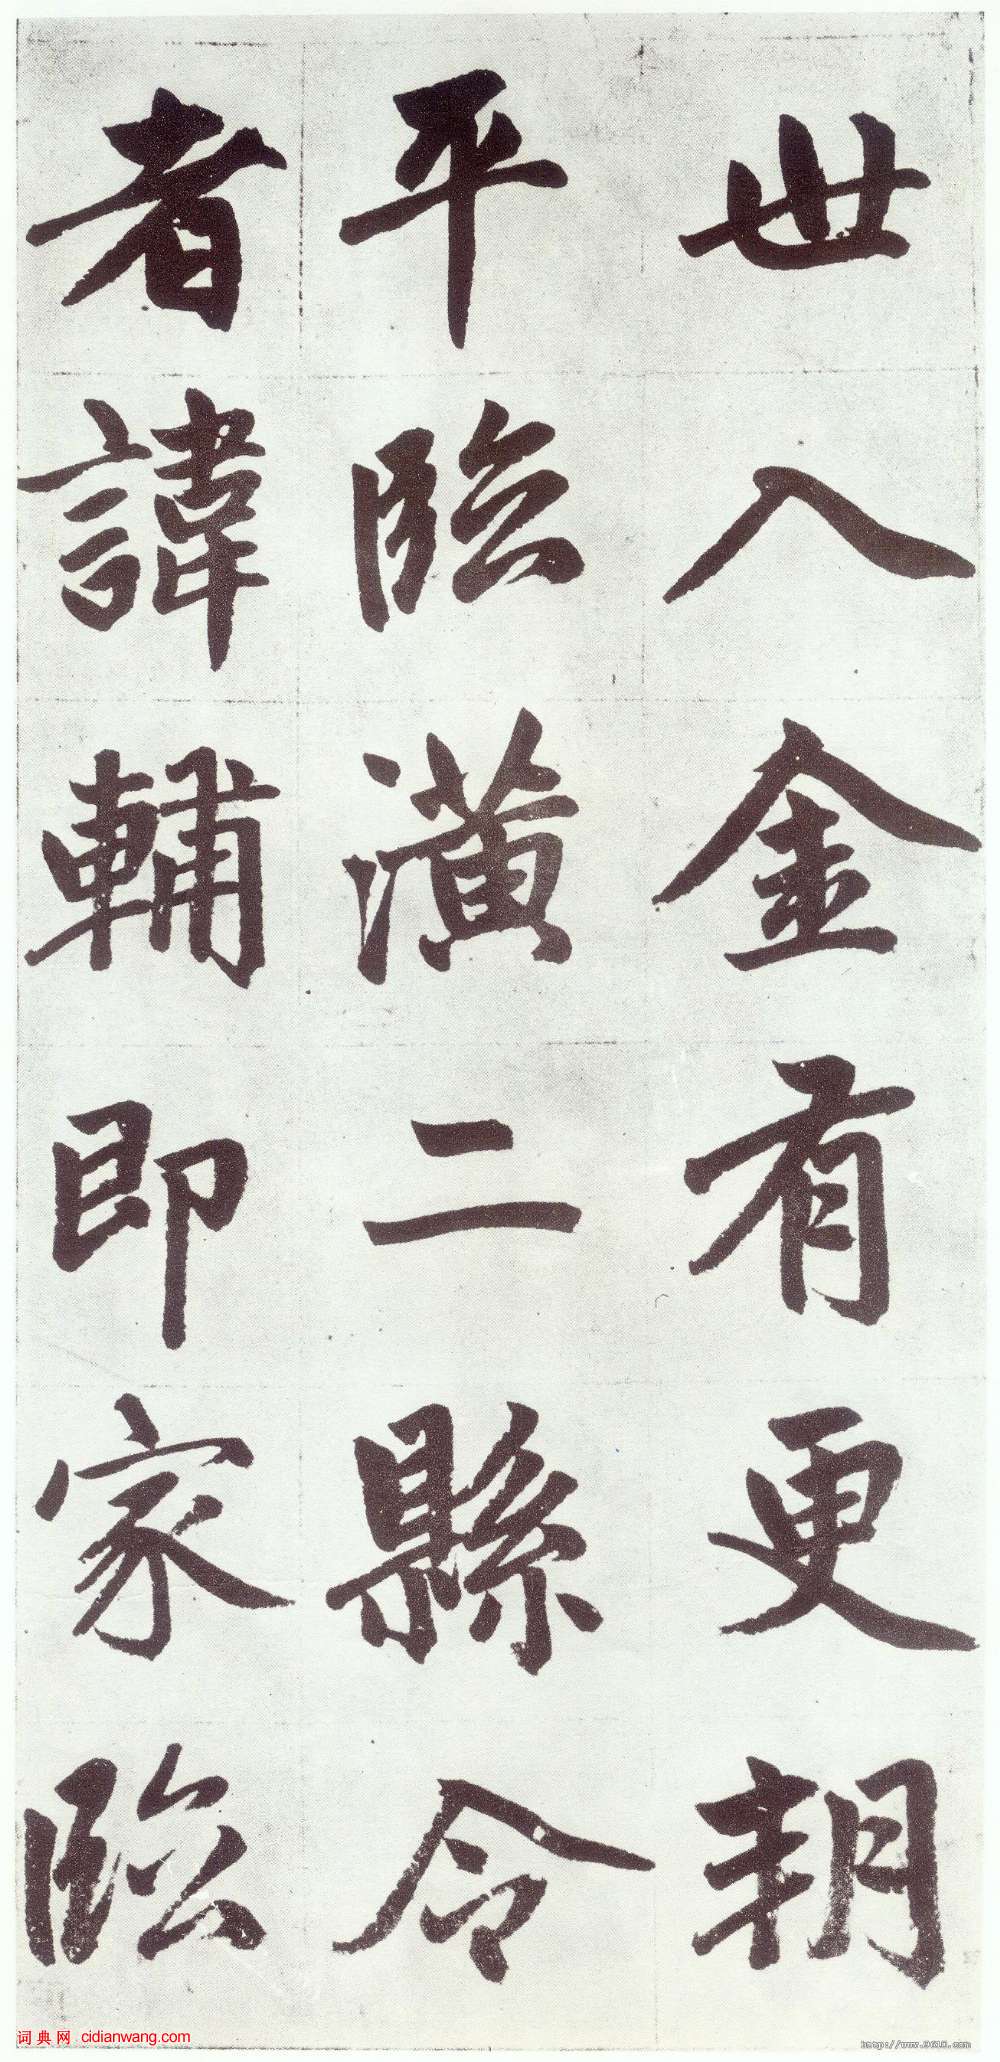 世入金有更朔
平臨潢二縣令
者諱輔即家臨
词典网 cidianwang.com
http://www.9610.com